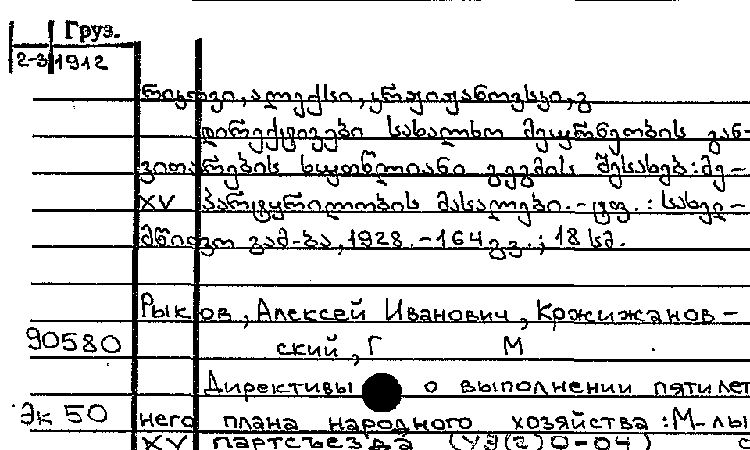 Груз.
2-3 1912
რიკოვი, ალექსი, კრჟიჟანოვსკი, გ
დირექტივები სახალხო მეურნეობის გან-
ვითარების ხუთწლიანი გეგმის შესახებ: მე-
XV პარტყრილობის მასალები. - ტფ. : სახელ-
მწიფო გამ-ბა, 1928. - 164 გვ. ; 18 სმ.
Рыков, Алексей Иванович, Кржижанов-
90580 ский, Г М
Директивы о выполнении пятилет
Эк 50 него плана народного хозяйства : М-лы
XV партсъезда